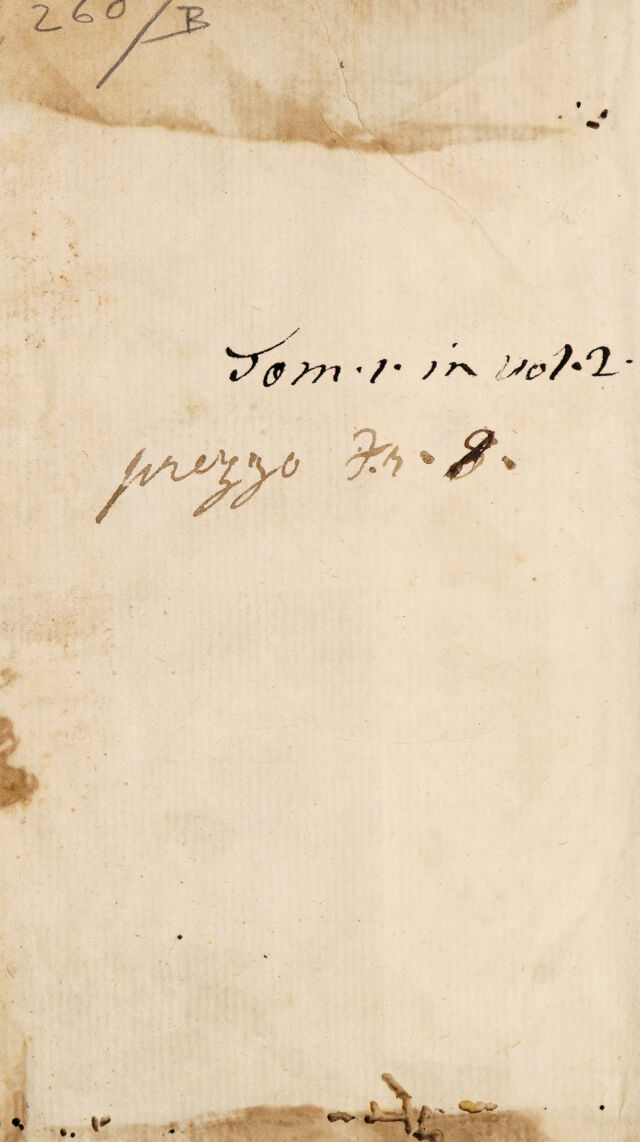 260/B
Tom. 1. in vol. 2.
prezzo Fr. 8.